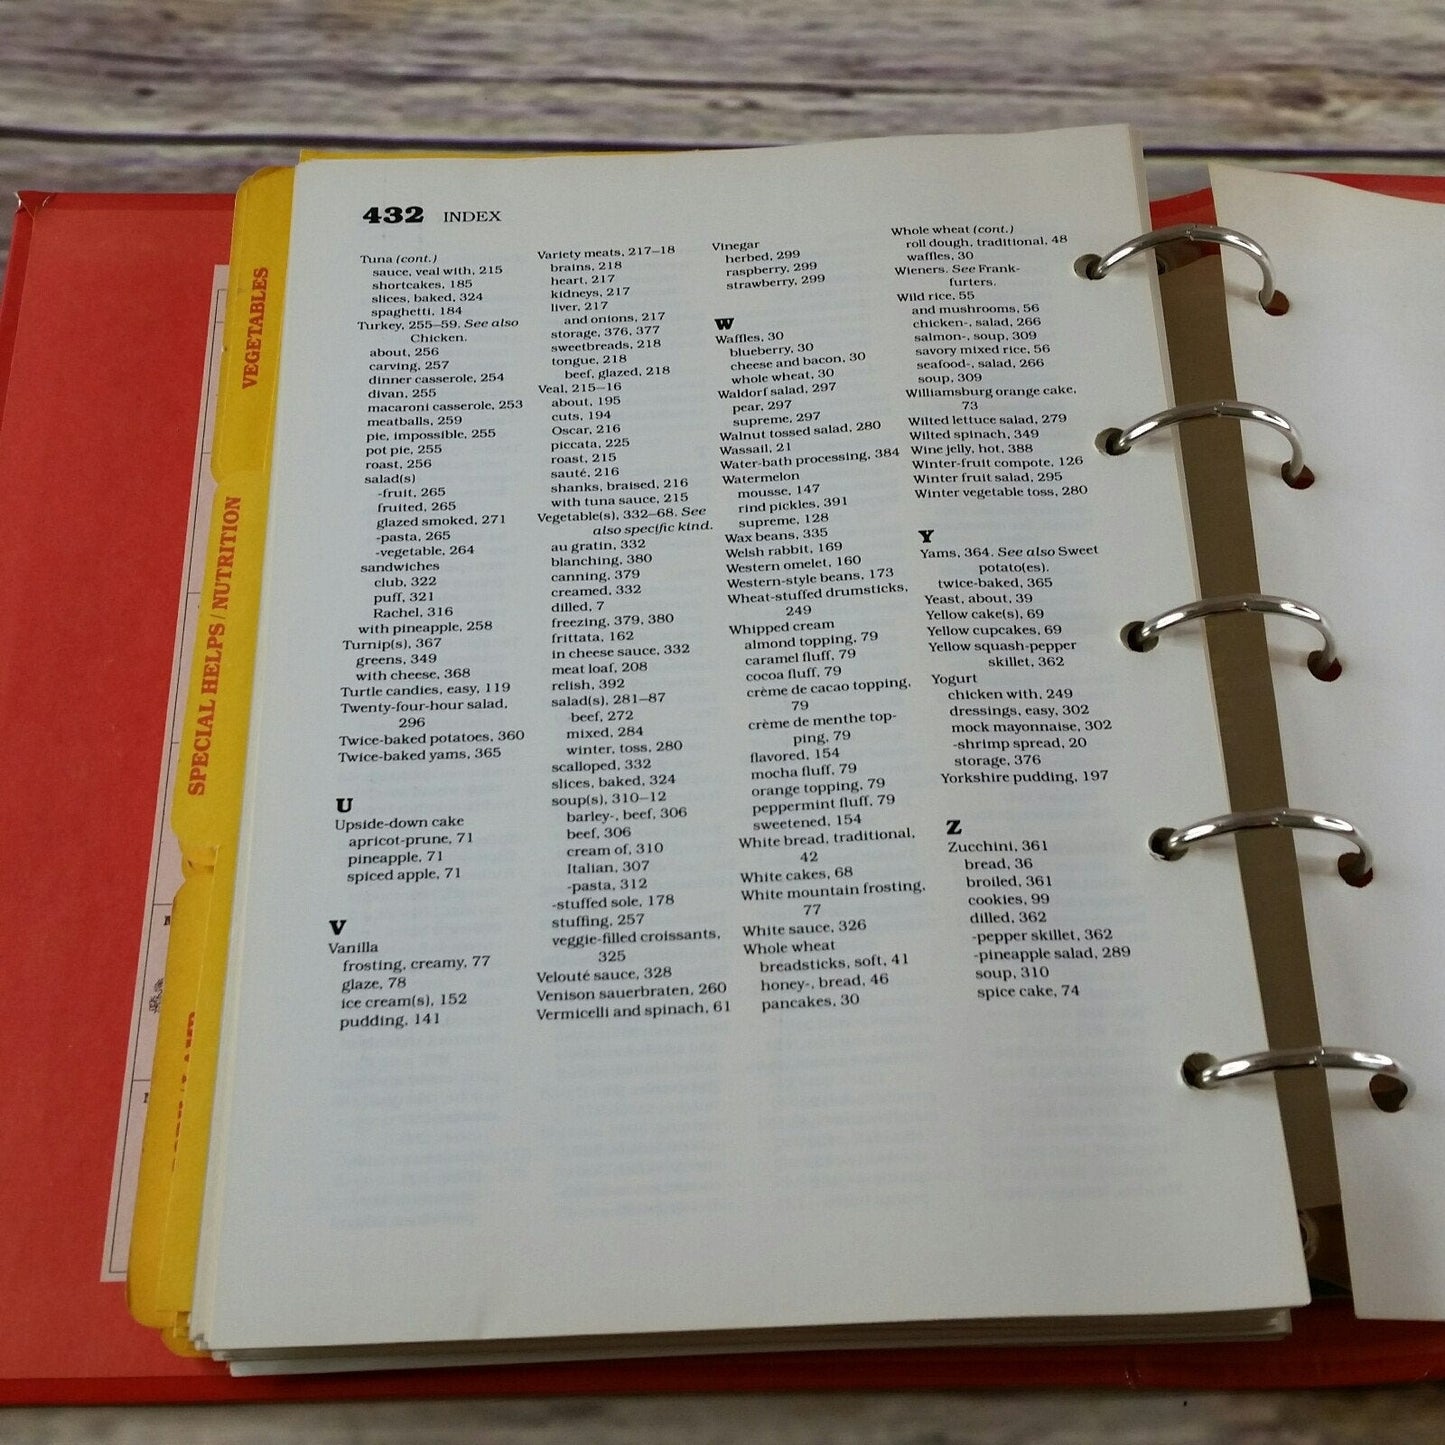 432 INDEX
Tuna (cont.)
sauce, veal with, 215
shortcakes, 185
slices, baked, 324
spaghetti, 184
Turkey, 255–59. See also
Chicken.
about, 256
carving, 257
dinner casserole, 254
divan, 255
macaroni casserole, 253
meatballs, 259
pie, impossible, 255
pot pie, 255
roast, 256
salad(s)
-fruit, 265
fruited, 265
glazed smoked, 271
-pasta, 265
-vegetable, 264
sandwiches
club, 322
puff, 321
Rachel, 316
with pineapple, 258
Turnip(s), 367
greens, 349
with cheese, 368
Turtle candies, easy, 119
Twenty-four-hour salad,
296
Twice-baked potatoes, 360
Twice-baked yams, 365
U
Upside-down cake
apricot-prune, 71
pineapple, 71
spiced apple, 71
V
Vanilla
frosting, creamy, 77
glaze, 78
ice cream(s), 152
pudding, 141
Variety meats, 217–18
brains, 218
heart, 217
kidneys, 217
liver, 217
and onions, 217
storage, 376, 377
sweetbreads, 218
tongue, 218
beef, glazed, 218
Veal, 215–16
about, 195
cuts, 194
Oscar, 216
piccata, 225
roast, 215
sauté, 216
shanks, braised, 216
with tuna sauce, 215
Vegetable(s), 332–68. See
also specific kind.
au gratin, 332
blanching, 380
canning, 379
creamed, 332
dilled, 7
freezing, 379, 380
frittata, 162
in cheese sauce, 332
meat loaf, 208
relish, 392
salad(s), 281–87
beef, 272
mixed, 284
winter, toss, 280
scalloped, 332
slices, baked, 324
soup(s), 310–12
barley-, beef, 306
beef, 306
cream of, 310
Italian, 307
-pasta, 312
-stuffed sole, 178
stuffing, 257
veggie-filled croissants,
325
Velouté sauce, 328
Venison sauerbraten, 260
Vermicelli and spinach, 61
Vinegar
herbed, 299
raspberry, 299
strawberry, 299
W
Waffles, 30
blueberry, 30
cheese and bacon, 30
whole wheat, 30
Waldorf salad, 297
pear, 297
supreme, 297
Walnut tossed salad, 280
Wassail, 21
Water-bath processing, 384
Watermelon
mousse, 147
rind pickles, 391
supreme, 128
Wax beans, 335
Welsh rabbit, 169
Western omelet, 160
Western-style beans, 173
Wheat-stuffed drumsticks,
249
Whipped cream
almond topping, 79
caramel fluff, 79
cocoa fluff, 79
crème de cacao topping,
79
crème de menthe top-
ping, 79
flavored, 154
mocha fluff, 79
orange topping, 79
peppermint fluff, 79
sweetened, 154
White bread, traditional,
42
White cakes, 68
White mountain frosting,
77
White sauce, 326
Whole wheat
breadsticks, soft, 41
honey-, bread, 46
pancakes, 30
Whole wheat (cont.)
roll dough, traditional, 48
waffles, 30
Wieners. See Frank-
furters.
Wild rice, 55
and mushrooms, 56
chicken-, salad, 266
salmon-, soup, 309
savory mixed rice, 56
seafood-, salad, 266
soup, 309
Williamsburg orange cake,
73
Wilted lettuce salad, 279
Wilted spinach, 349
Wine jelly, hot, 388
Winter-fruit compote, 126
Winter fruit salad, 295
Winter vegetable toss, 280
Y
Yams, 364. See also Sweet
potato(es).
twice-baked, 365
Yeast, about, 39
Yellow cake(s), 69
Yellow cupcakes, 69
Yellow squash-pepper
skillet, 362
Yogurt
chicken with, 249
dressings, easy, 302
mock mayonnaise, 302
-shrimp spread, 20
storage, 376
Yorkshire pudding, 197
Z
Zucchini, 361
bread, 36
broiled, 361
cookies, 99
dilled, 362
-pepper skillet, 362
-pineapple salad, 289
soup, 310
spice cake, 74
VEGETABLES
SPECIAL HELPS / NUTRITION